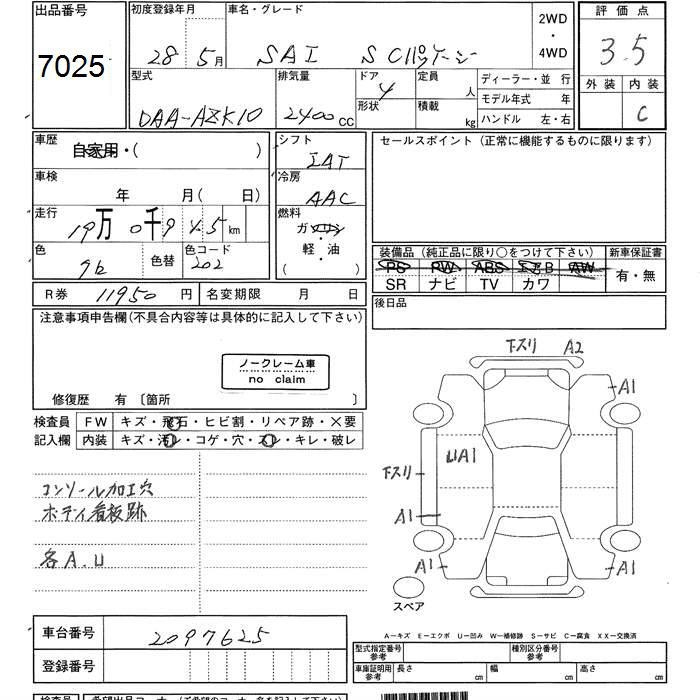 出品番号
7025
初度登録年月
28 5月
車名・グレード
SAI S Cパッケージ
2WD
・
4WD
評価点
3.5
外装 内装
C
型式
DAA-AZK10
排気量
2400 CC
ドア
4
形状
定員
人
積載
kg
ディーラー・並 行
モデル年式 年
ハンドル 左・右
車歴
自家用・( )
シフト
IAT
セールスポイント(正常に機能するものに限ります)
車検
年 月( 日)
冷房
AAC
走行
19万0千945km
燃料
ガソリン
・
軽・油
( )
色
色替
色コード
202
装備品(純正品に限り○をつけて下さい)
新車保証書
PS PW ABS エアB AW
SR ナビ TV カワ
有・無
R券 11950 円
名変期限 月 日
後日品
注意事項申告欄(不具合内容等は具体的に記入して下さい)
ノークレーム車
no claim
修復歴 有〔箇所 〕
検査員
記入欄
FW キズ・飛石・ヒビ割・リペア跡・×要
内装 キズ・汚レ・コゲ・穴・スレ・キレ・破レ
コンソール加工穴
ボディ看板跡
各A.U
下スリ A2
A1
UA1
下スリ
A1
A1
A1
スペア
車台番号 2097625
登録番号
A―キズ E―エクボ U―凹み W―補修跡 S―サビ C―腐食 XX―交換済
型式指定番号
参考
種別区分番号
参考
車庫証明用
参考
長さ cm 幅 cm 高さ cm